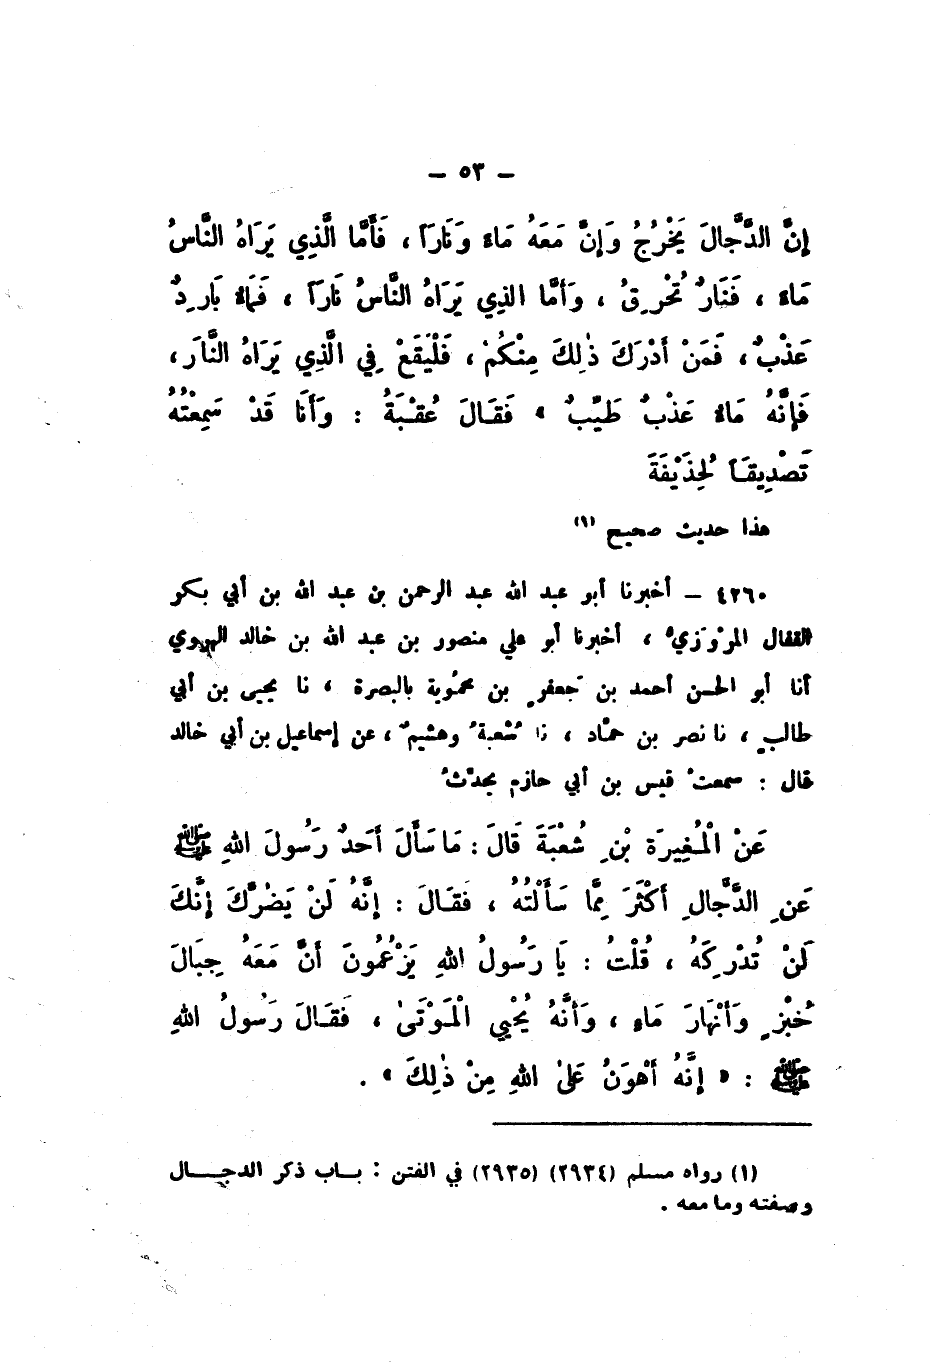 – ٥٣ –
إِنَّ الدَّجَّالَ يَخْرُجُ وَإِنَّ مَعَهُ مَاءً وَنَارَاً ، فَأَمَّا الَّذِي يَرَاهُ النَّاسُ
مَاءً ، فَنَارٌ تُحْرِقُ ، وَأَمَّا الذِي يَرَاهُ النَّاسُ نَارَاً ، فَمَاءٌ بَارِدٌ
عَذْبٌ ، فَمَنْ أَدْرَكَ ذٰلِكَ مِنْكُمْ ، فَلْيَقَعْ فِي الَّذِي يَرَاهُ النَّارَ ،
فَإِنَّهُ مَاءٌ عَذْبٌ طَيِّبٌ » فَقَالَ عُقْبَةُ : وَأَنَا قَدْ سَمِعْتُهُ
تَصْدِيقَاً لِحُذَيْفَةَ
هذا حديث صحيح (١)
٤٢٦٠ – أخبرنا أبو عبد الله عبد الرحمن بن عبد الله بن أبي بكر
القفال المرْوَزيُّ ، أخبرنا أبو علي منصور بن عبد الله بن خالد الهروي
أنا أبو الحسن أحمد بن جَعفرٍ بن محمُوية بالبصرة ، نا يحيى بن أبي
طالبٍ ، نا نصر بن حمَّاد ، نا شُعبةُ وهشيمٌ ، عن إسماعيل بن أبي خالد
قال : سمعتُ قيس بن أبي حازم يحدِّثُ
عَنْ الْمُغِيرَةِ بْنِ شُعْبَةَ قَالَ : مَا سَأَلَ أَحَدٌ رَسُولَ اللهِ ﷺ
عَنِ الدَّجَّالِ أَكْثَرَ مِمَّا سَأَلْتُهُ ، فَقَالَ : إِنَّهُ لَنْ يَضُرَّكَ إِنَّكَ
لَنْ تُدْرِكَهُ ، قُلْتُ : يَا رَسُولُ اللهِ يَزْعُمُونَ أَنَّ مَعَهُ جِبَالَ
خُبْزٍ وَأَنْهَارَ مَاءٍ ، وَأَنَّهُ يُحْيِي الْمَوْتَىٰ ، فَقَالَ رَسُولُ اللهِ
ﷺ : « إِنَّهُ أَهْوَنُ عَلَىٰ اللهِ مِنْ ذٰلِكَ » .
(١) رواه مسلم (٢٩٣٤) (٢٩٣٥) في الفتن : بــاب ذكر الدجــــال
وصفته وما معه .